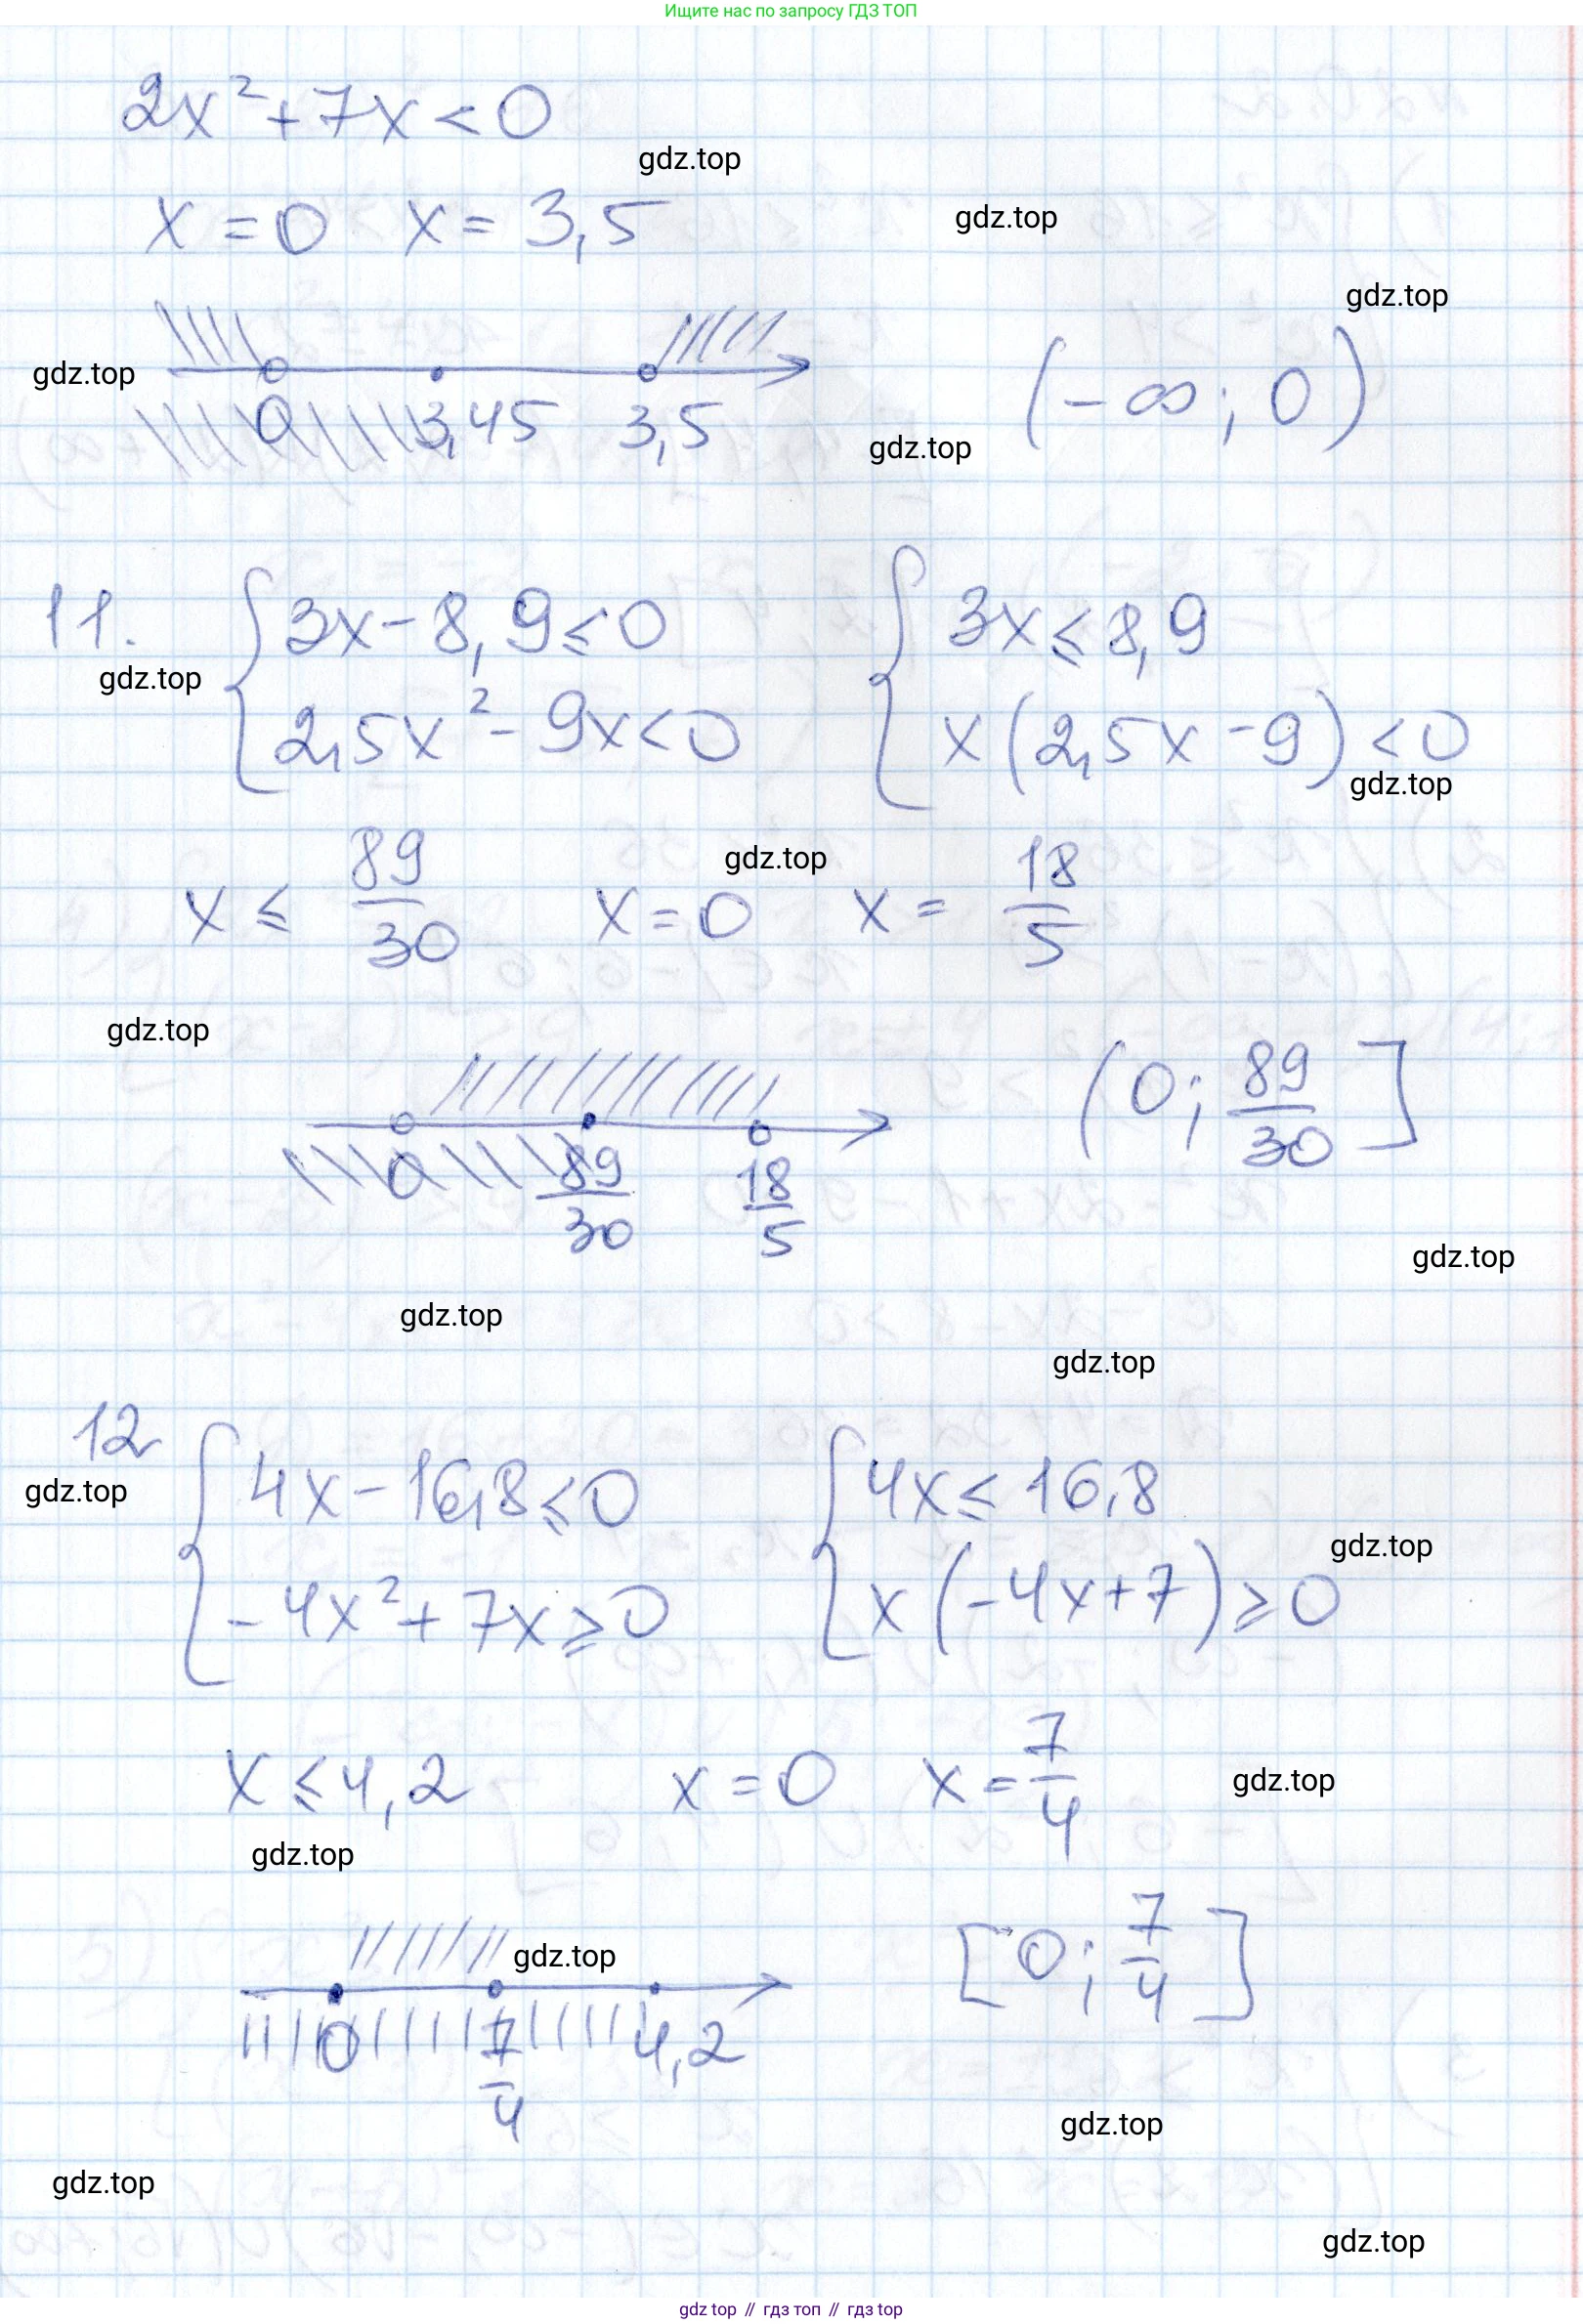 Ищите нас по запросу ГДЗ ТОП
2x²+7x<0
gdz.top
x=0 x=3,5
gdz.top
gdz.top
gdz.top
0 3,45 3,5
(-∞; 0)
gdz.top
11. {3x-8,9≤0 {3x≤8,9
gdz.top
2,5x²-9x<0 x(2,5x-9)<0
gdz.top
x ≤ 89/30 x=0 x= 18/5
gdz.top
gdz.top
0 89/30 18/5
(0; 89/30]
gdz.top
gdz.top
gdz.top
12 {4x-16,8≤0 {4x≤16,8
gdz.top
-4x²+7x≥0 x(-4x+7)≥0
gdz.top
x≤4,2 x=0 x=7/4
gdz.top
gdz.top
gdz.top
0 7/4 4,2
[0; 7/4]
gdz.top
gdz.top
gdz.top
gdz top // гдз топ // гдз top